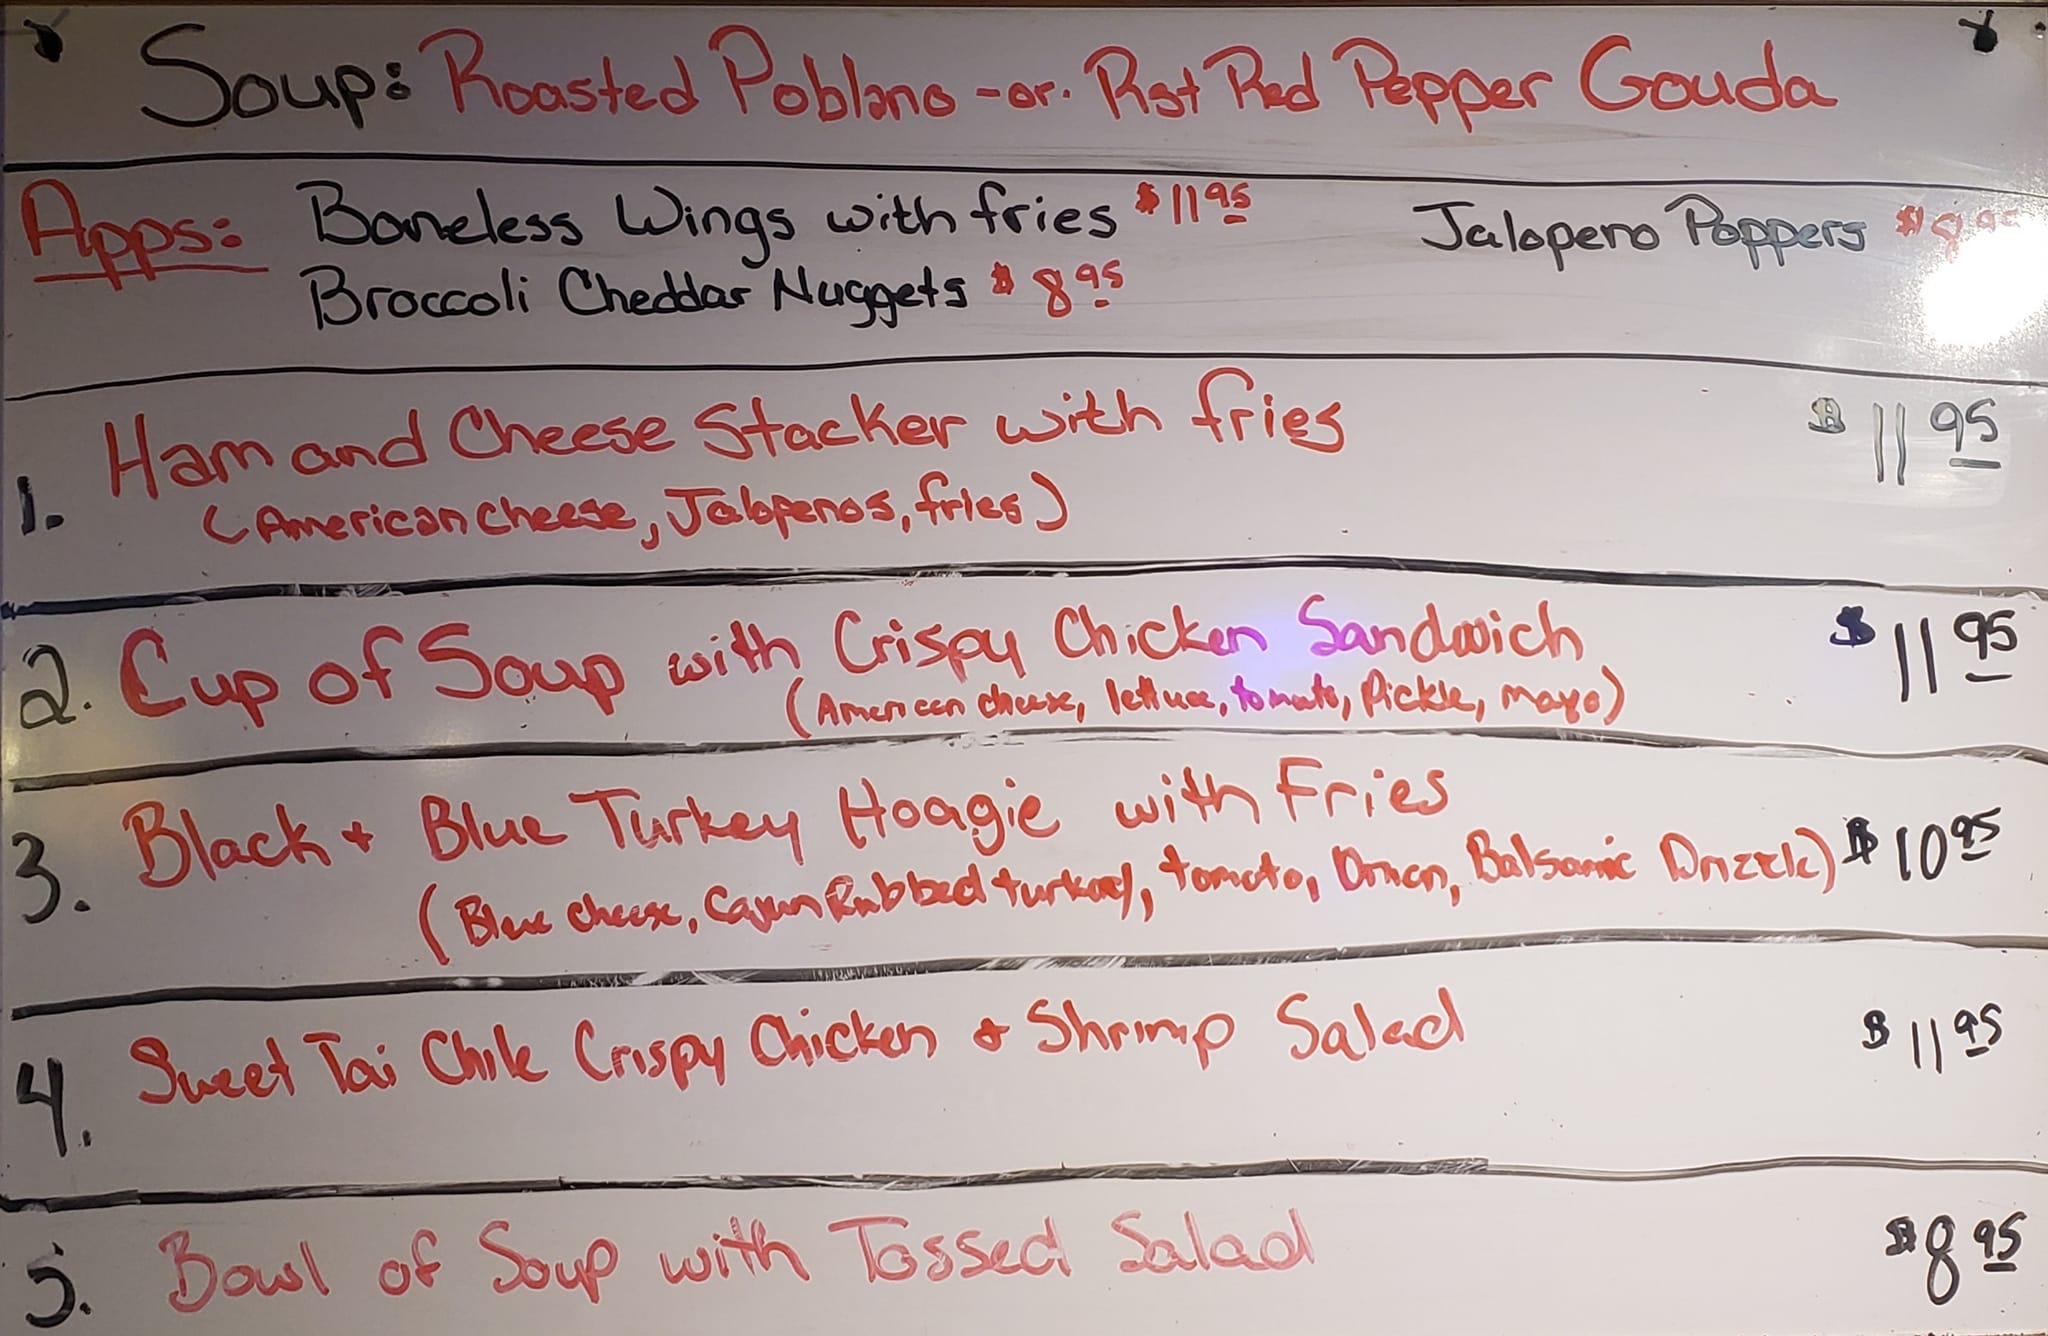 Soup: Roasted Poblano -or- Rst Red Pepper Gouda
Apps: Boneless Wings with fries $11.95 Jalopeno Poppers $8.95
Broccoli Cheddar Nuggets $8.95
1. Ham and Cheese Stacker with fries $11.95
(American cheese, Jalopenos, fries)
2. Cup of Soup with Crispy Chicken Sandwich $11.95
(American cheese, lettuce, tomato, Pickle, mayo)
3. Black + Blue Turkey Hoagie with Fries
(Blue cheese, Cajun Rubbed turkey, tomato, Onion, Balsamic Drizzle) $10.95
4. Sweet Tai Chile Crispy Chicken + Shrimp Salad $11.95
5. Bowl of Soup with Tossed Salad $8.95